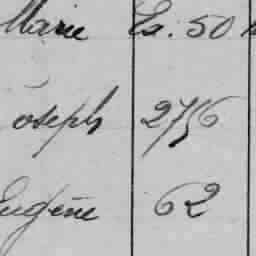 Marie Ex. 50
Joseph 27/6
Eugène 62